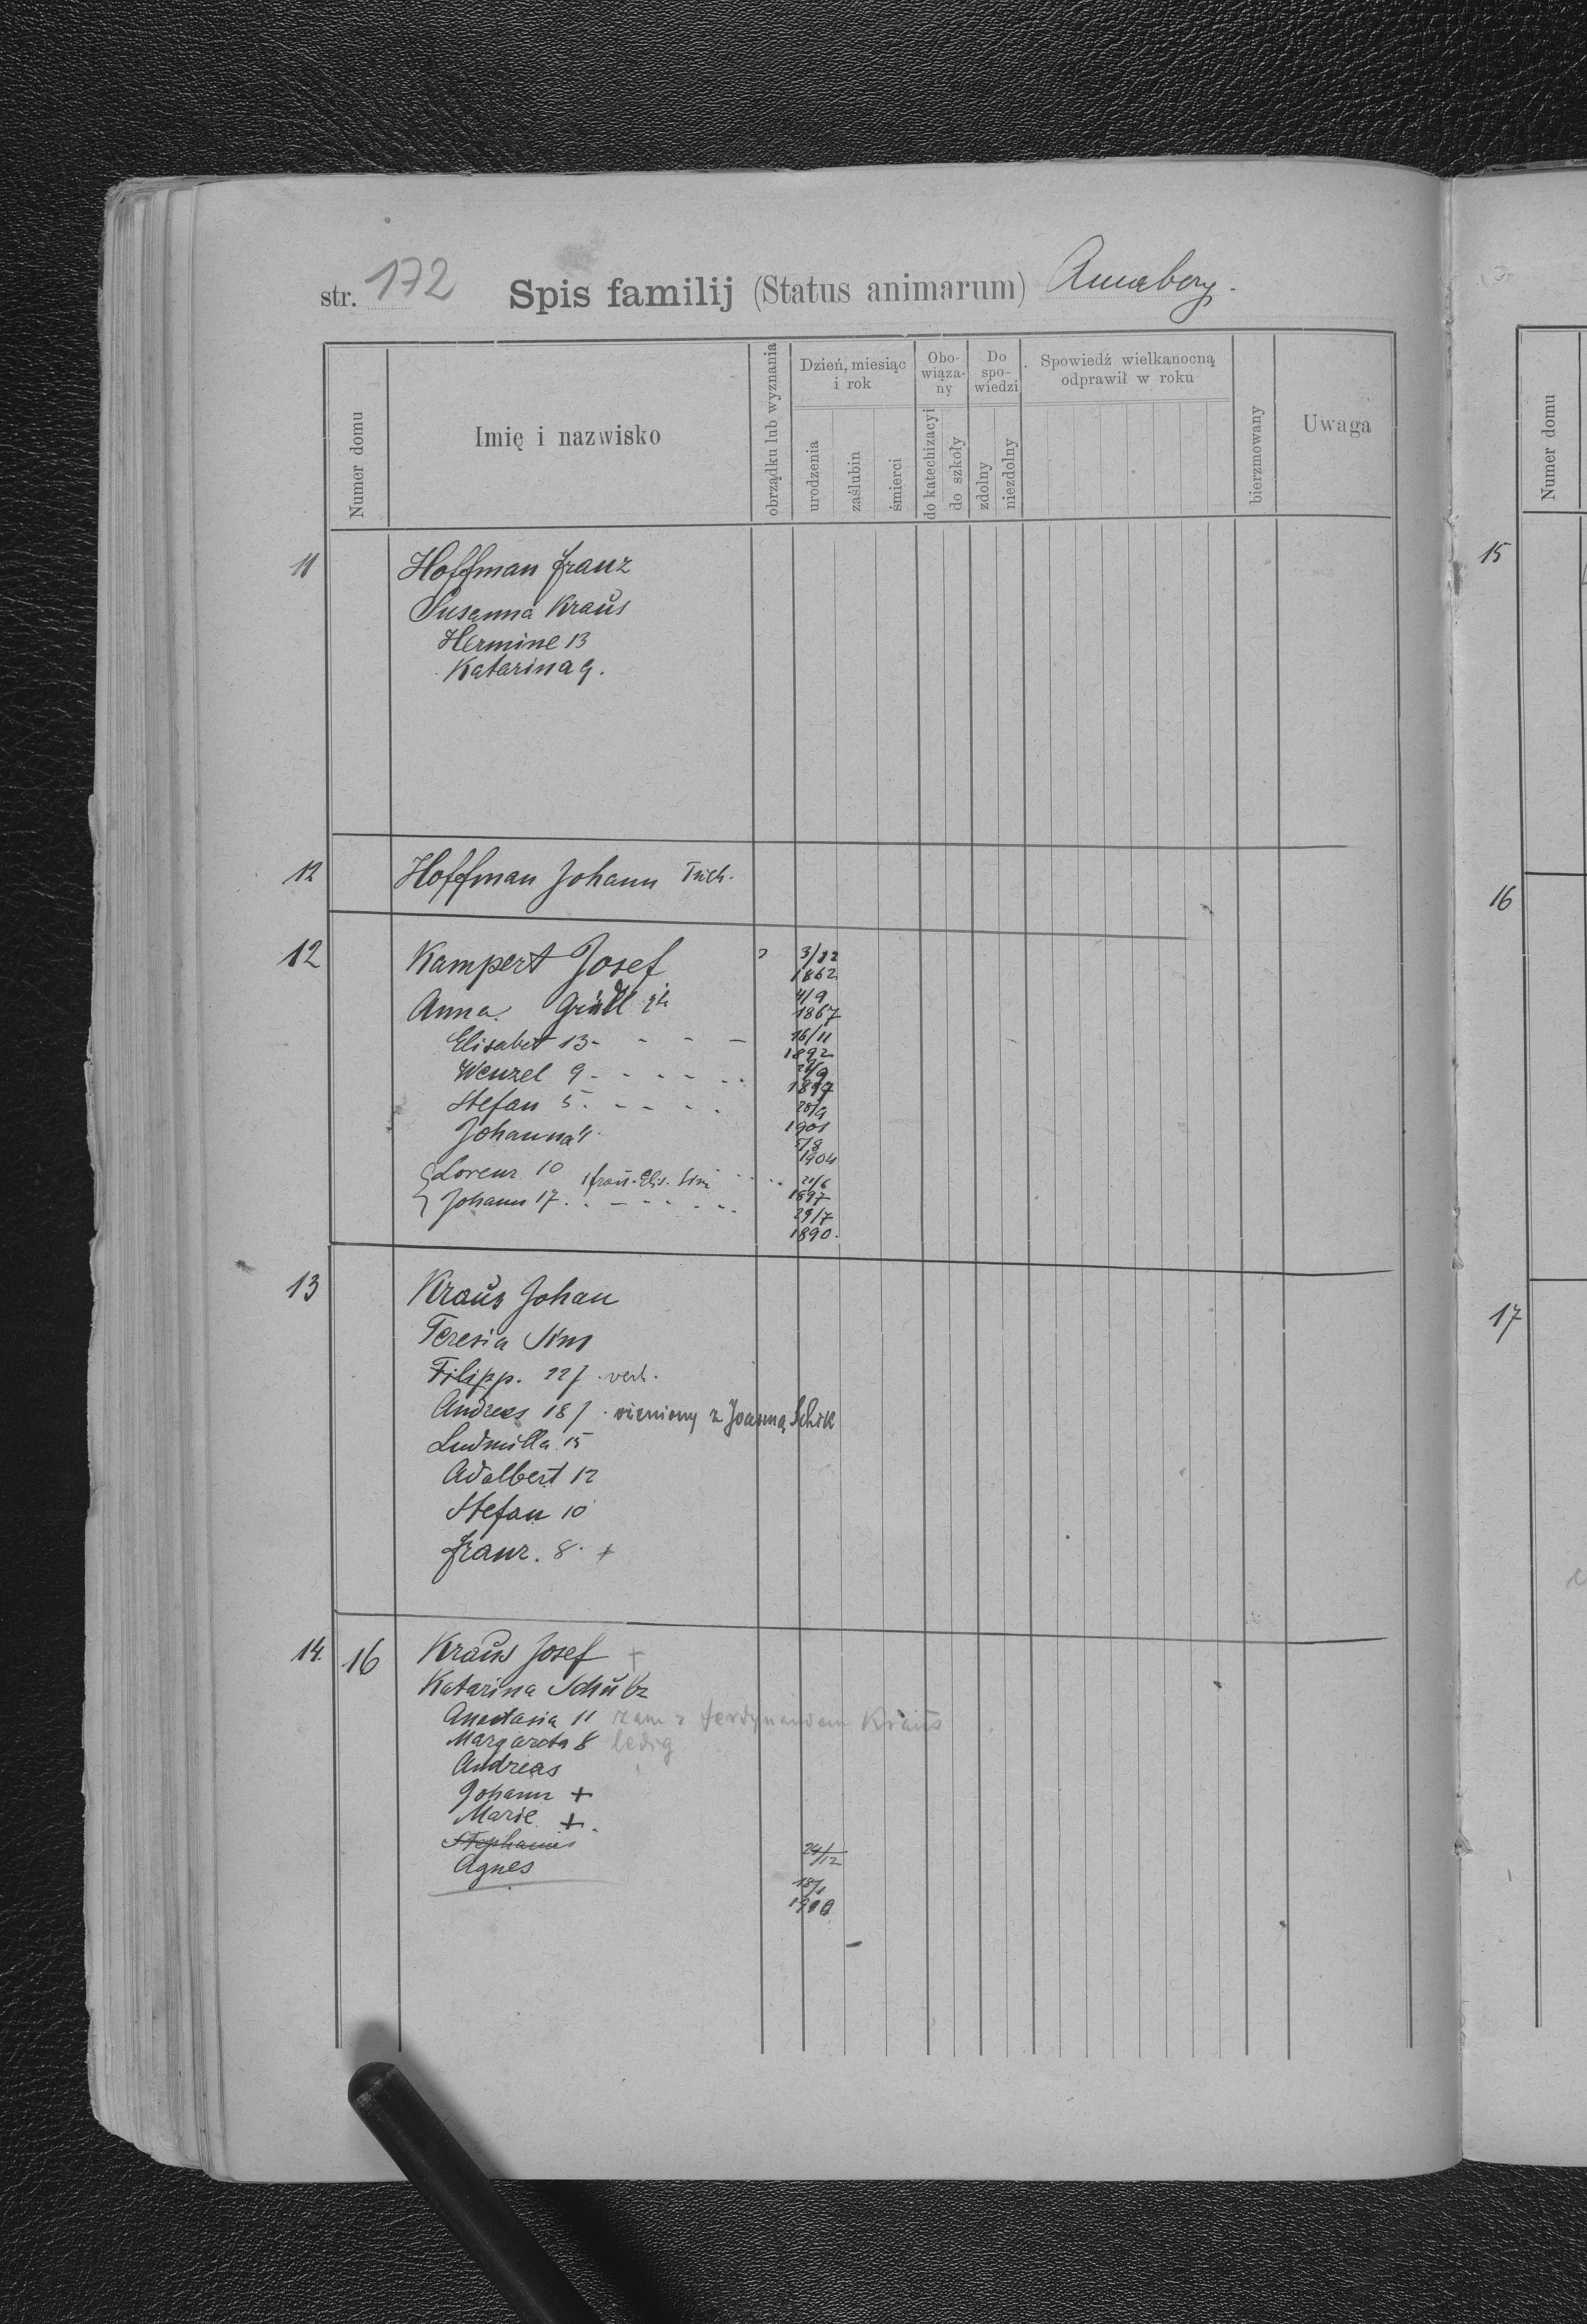 str. 172 Spis familij (Status animarum) Annaberg.
Numer domu
Imię i nazwisko
obrządku lub wyznania
Dzień, miesiąc i rok
urodzenia
zaślubin
śmierci
Obo-wiąza-ny
do katechizacyi
do szkoły
Do spo-wiedzi
zdolny
niezdolny
Spowiedź wielkanocną odprawił w roku
bierzmowany
Uwaga
11 Hoffman Franz
Susanna Kraus
Hermine 13
Katarina 9.
12 Hoffman Johann
12 Kampert Josef 3/12 1862
Anna 4/9 1867
Elisabet 13 - - - - 16/11 1892
Wenzel 9 - - - - 1897
Stefan 5 - - - - 28/9 1901
Johanna 5/8 1904
Lorenz 10 21/6 1897
Johann 17 - - - - 29/7 1890.
13 Kraus Johan
Teresia Sim
Filipp. 22 j. verh.
Andreas 18 j. ożeniony z Joanną Schik
Ludmilla 15
Adalbert 12
Stefan 10
Franz. 8. +
14. 16 Kraus Josef +
Katarina Schulz
Anastasia 11 zam z Ferdynandem Kraus
Margareta 8 ledig
Andreas
Johann +
Marie +.
Stephanus 24/12
Agnes 18/1
Numer domu
15
16
17